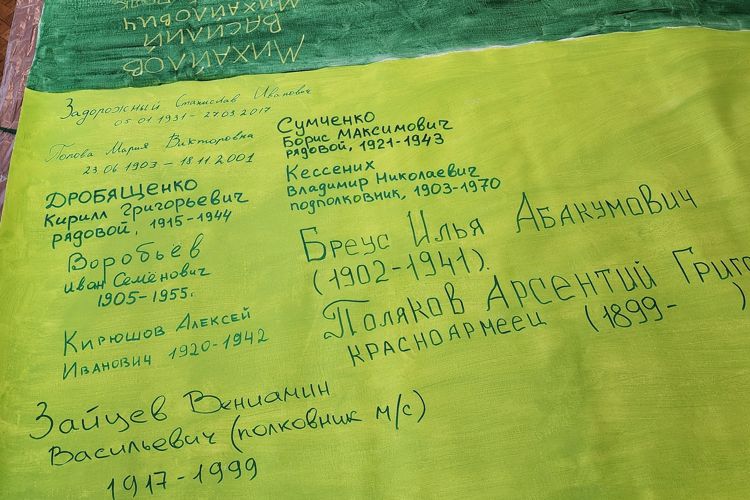 МИХАЙЛОВ
ВАСИЛИЙ
МИХАЙЛОВИЧ
Задорожный Станислав Иванович
05.01 1931 - 27.03.2017
Попова Мария Викторовна
23.06 1903 - 18.11 2001
ДРОБЯЩЕНКО
Кирилл Григорьевич
рядовой, 1915-1944
Воробьёв
Иван Семёнович
1905-1955г.
Кирюшов Алексей
Иванович 1920-1942
Сумченко
Борис Максимович
рядовой, 1921-1943
Кессених
Владимир Николаевич
подполковник, 1903-1970
Бреус Илья Абакумович
(1902-1941).
Поляков Арсентий Григо
красноармеец (1899- )
Зайцев Вениамин
Васильевич (полковник м/с)
1917-1999